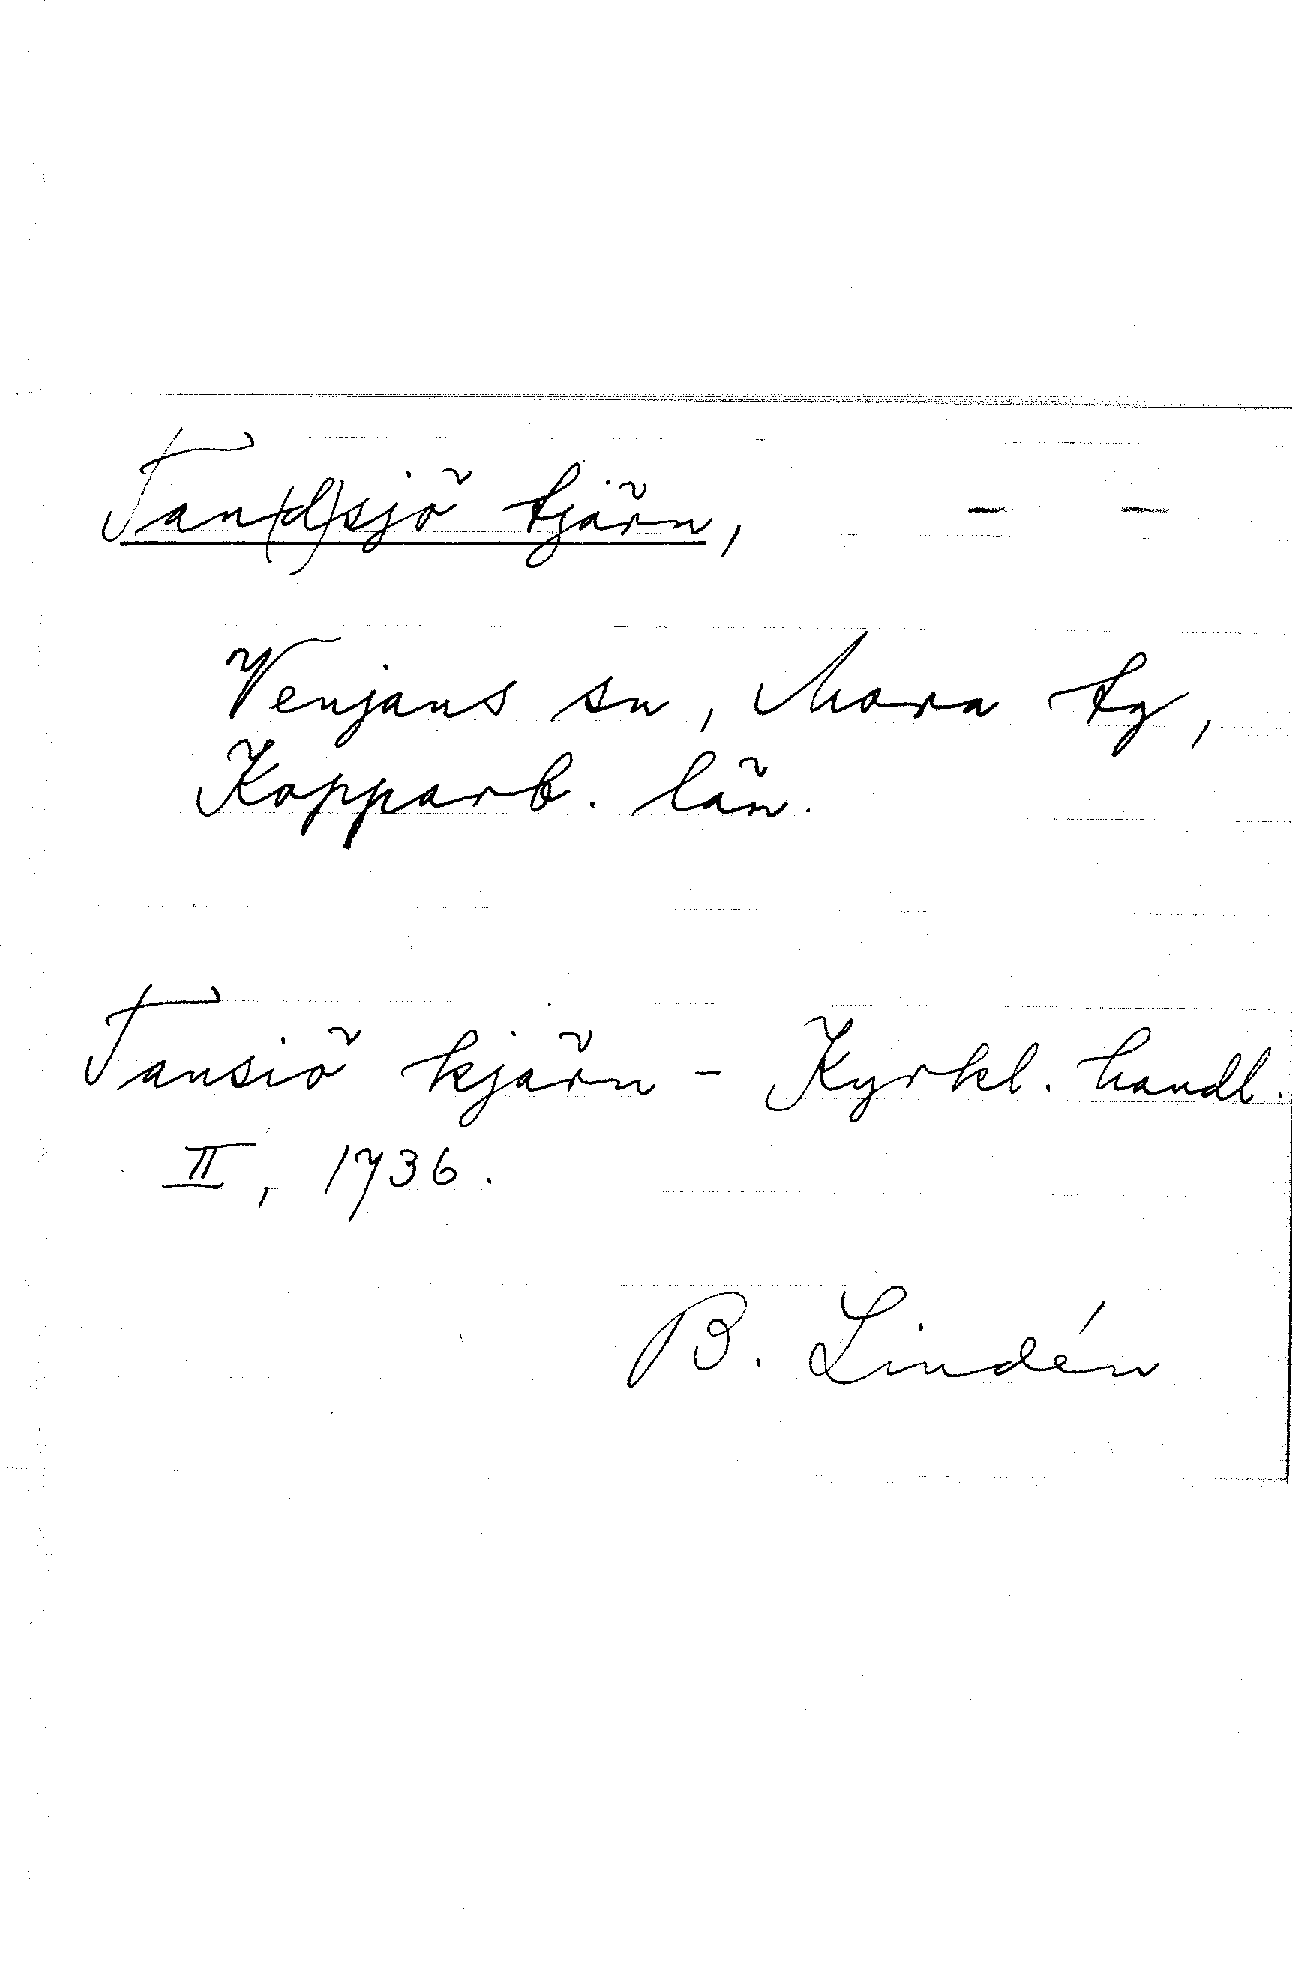 Tan(d)sjö tjärn, – –
Venjans sn, Mora tg,
Kopparb. län.
Tansiö kjärn – Kyrkl. handl.
II, 1736.
B. Lindén